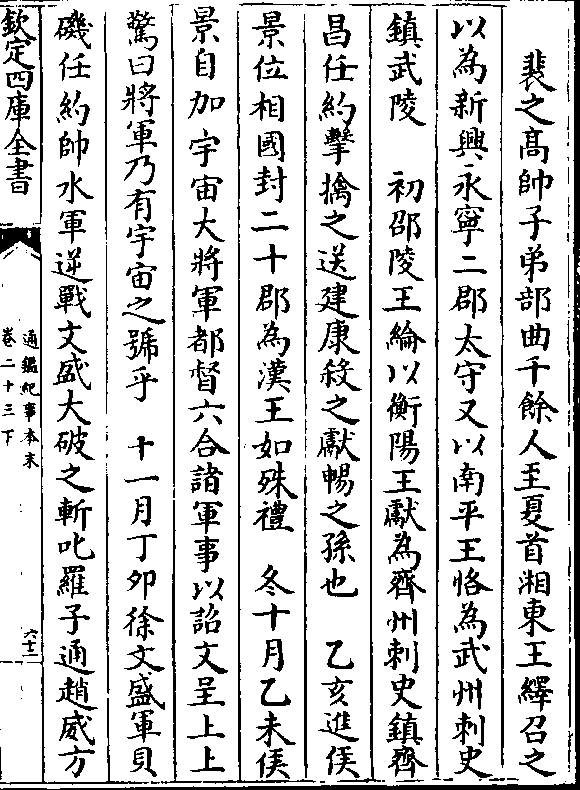 裴之髙帥子弟部曲千餘人至夏首湘東王繹召之
以為新興永寧二郡太守又以南平王恪為武州刺史
鎮武陵　初邵陵王綸以衡陽王獻為齊州刺史鎮齊
昌任約擊擒之送建康殺之獻暢之孫也　乙亥進侯
景位相國封二十郡為漢王如殊禮　冬十月乙未侯
景自加宇宙大將軍都督六合諸軍事以詔文呈上上
驚曰將軍乃有宇宙之號乎　十一月丁夘徐文盛軍貝
磯任約帥水軍逆戰文盛大破之斬叱羅子通趙威方
欽定四庫全書
通鑑紀事本末
卷二十三下
六十二